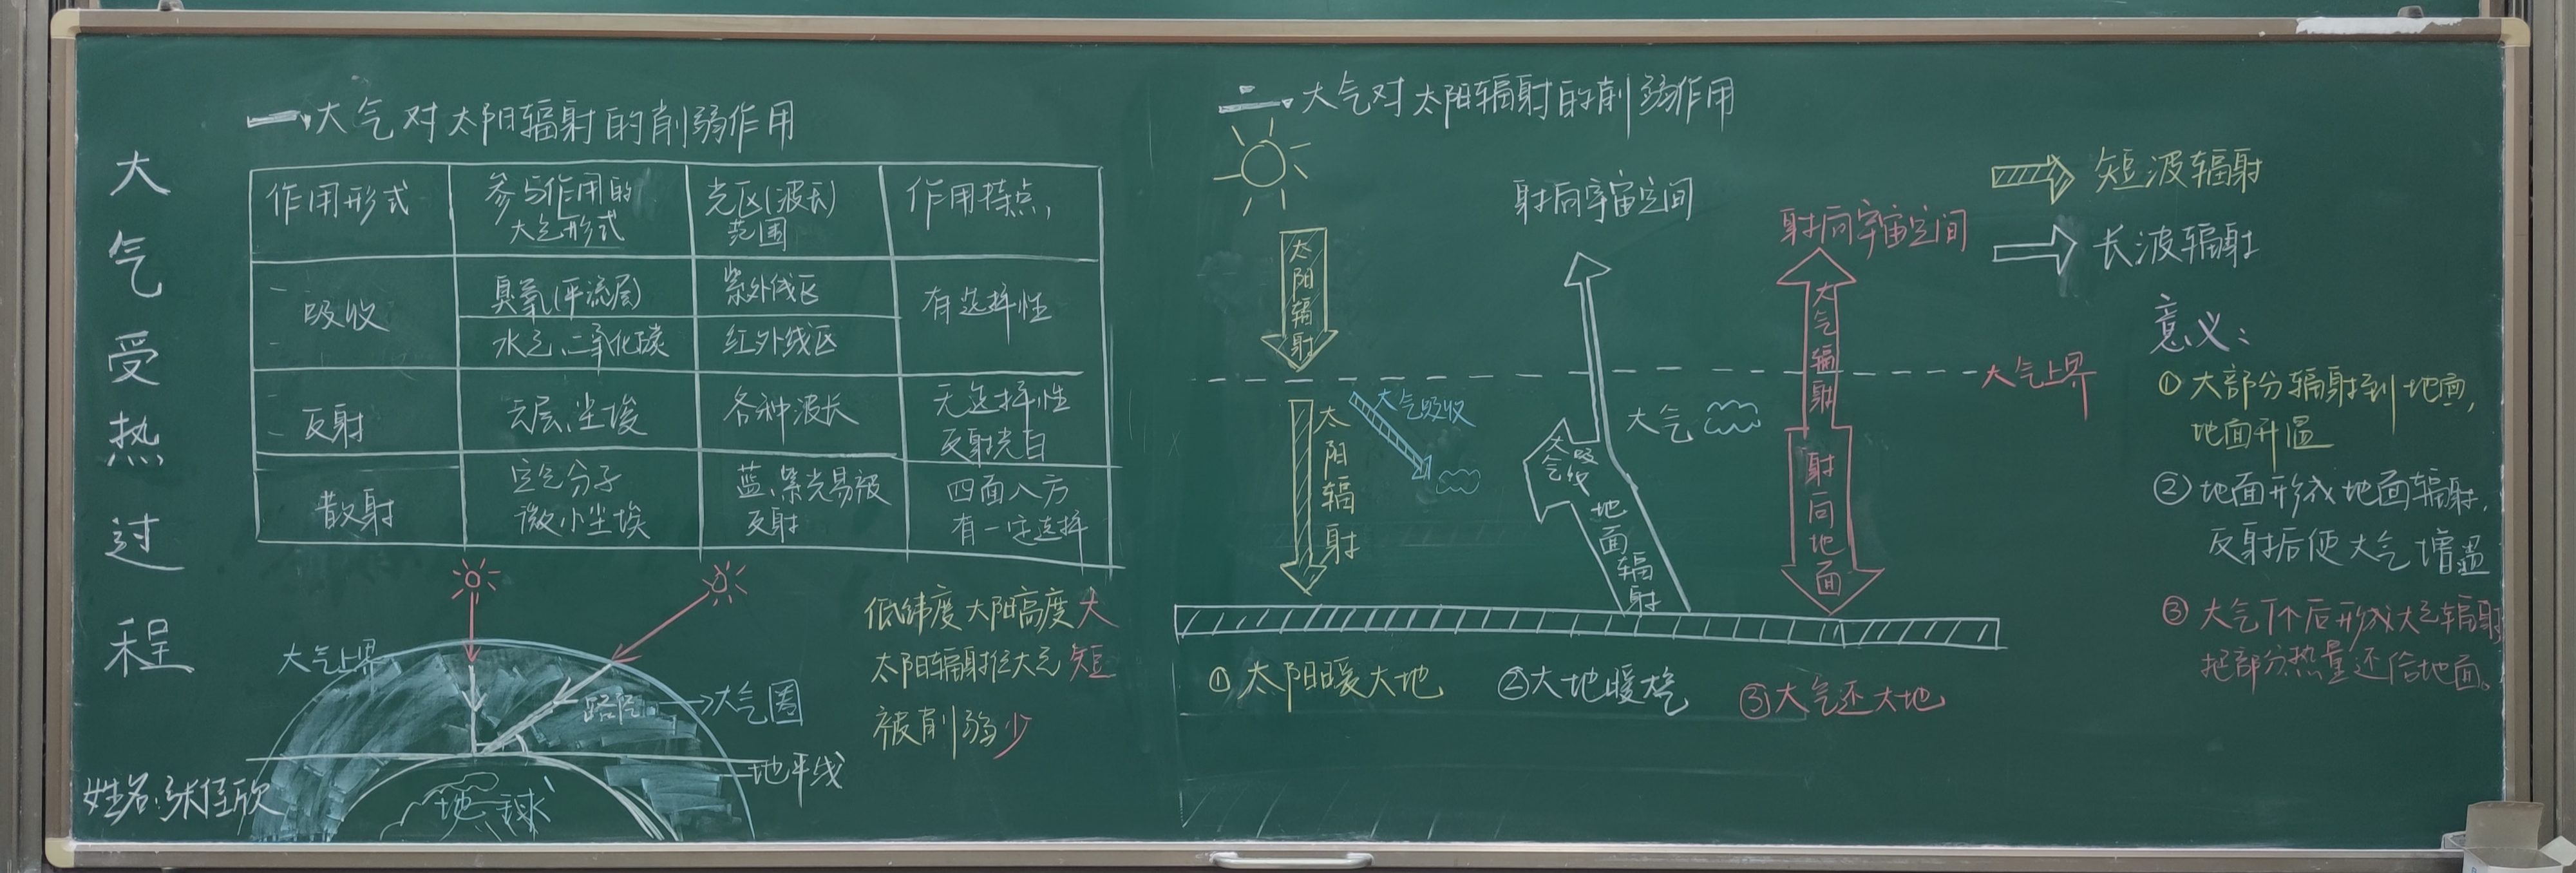 大气受热过程
一、大气对太阳辐射的削弱作用
作用形式
参与作用的
大气形式
光区(波长)
范围
作用特点
吸收
臭氧(平流层)
紫外线区
有选择性
水气、二氧化碳
红外线区
反射
云层、尘埃
各种波长
无选择性
反射光白
散射
空气分子
微小尘埃
蓝、紫光易被
反射
四面八方
有一定选择
大气上界
路径
大气圈
地平线
地球
低纬度太阳高度大
太阳辐射经大气短
被削弱少
姓名:张佳欣
二、大气对太阳辐射的削弱作用
太阳辐射
射向宇宙空间
射向宇宙空间
大气辐射
大气上界
太阳辐射
大气吸收
大气
大气吸收
地面辐射
射向地面
①太阳暖大地
②大地暖大气
③大气还大地
短波辐射
长波辐射
意义:
①大部分辐射到地面,
地面升温
②地面形成地面辐射,
反射后使大气增温
③大气下后形成大气辐射
把部分热量还给地面。